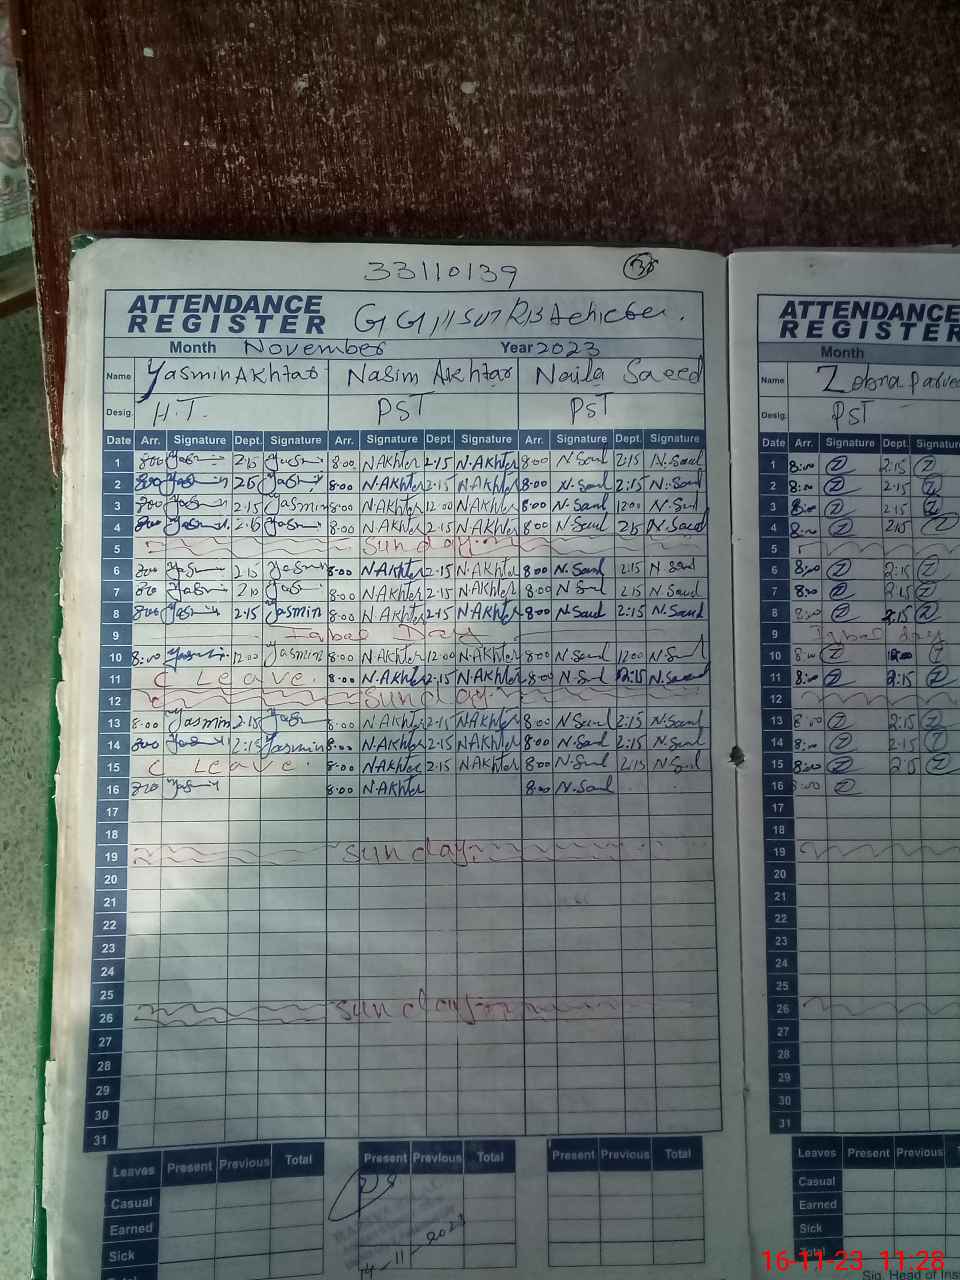 33110139 36
ATTENDANCE
REGISTER
Month November Year 2023
Name Yasmin Akhtar Nasim Akhtar Naila Saeed
Desig. H.T. PST PST
Date Arr. Signature Dept. Signature Arr. Signature Dept. Signature Arr. Signature Dept. Signature
1 8:00 2:15 8:00 N.Akhter 2:15 N.Akhter 8:00 N.Saed 2:15 N.Saed
2 8:00 8:00 N.Akhter 2:15 N.Akhter 8:00 N.Saed 2:15 N.Saed
3 2:15 Yasmin 8:00 N.Akhter 12:00 N.Akhter 8:00 N.Saed 12:00 N.Saed
4 8:00 2:15 8:00 N.Akhter 2:15 N.Akhter 8:00 N.Saed 2:15 N.Saed
5 Sunday
6 2:15 8:00 N.Akhter 2:15 N.Akhter 8:00 N.Saed 2:15 N.Saed
7 8:00 N.Akhter 2:15 N.Akhter 8:00 N.Saed 2:15 N.Saed
8 8:00 2:15 Yasmin 8:00 N.Akhter 2:15 N.Akhter 8:00 N.Saed 2:15 N.Saed
9 Iqbal Day
10 8:00 12:00 Yasmin 8:00 N.Akhter 12:00 N.Akhter 8:00 N.Saed 12:00 N.Saed
11 C Leave. 8:00 N.Akhter 2:15 N.Akhter 8:00 N.Saed 2:15 N.Saeed
12 Sunday
13 8:00 Yasmin 2:15 8:00 N.Akhter 2:15 N.Akhter 8:00 N.Saed 2:15 N.Saed
14 8:00 2:15 Yasmin 8:00 N.Akhter 2:15 N.Akhter 8:00 N.Saed 2:15 N.Saed
15 C Leave. 8:00 N.Akhter 2:15 N.Akhter 8:00 N.Saed 2:15 N.Saed
16 8:00 N.Akhter 8:00 N.Saed
17
18
19 Sunday
20
21
22
23
24
25
26 Sunday
27
28
29
30
31
Leaves Present Previous Total Present Previous Total Present Previous Total
Casual
Earned
Sick
14-11-2023
ATTENDANCE
REGISTER
Month
Name
Desig. PST
Date Arr. Signature Dept. Signature
1 8:00 Z 2:15 Z
2 8:00 Z 2:15 Z
3 8:00 Z 2:15 Z
4 8:00 Z 2:15 Z
5
6 8:00 Z 2:15 Z
7 8:00 Z 2:15 Z
8 8:00 Z 2:15 Z
9 Iqbal day
10 8:00 Z 12:00 Z
11 8:00 Z 2:15 Z
12
13 8:00 Z 2:15 Z
14 8:00 Z 2:15 Z
15 8:00 Z 2:15 Z
16 8:00 Z
17
18
19
20
21
22
23
24
25
26
27
28
29
30
31
Leaves Present Previous
Casual
Earned
Sick
Total
Sig. Head of Ins
16-11-23 11:28